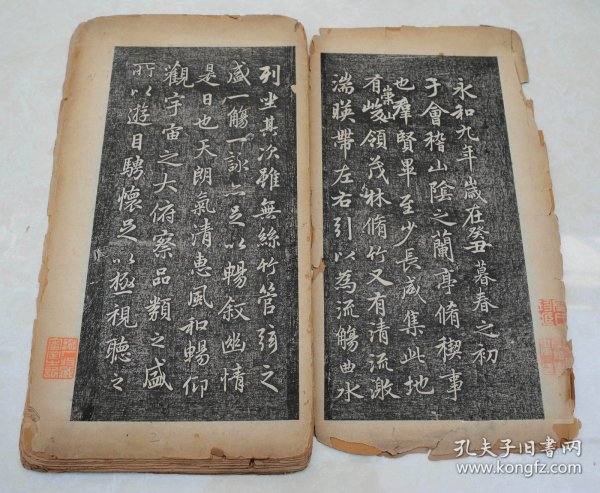 永和九年歲在癸丑暮春之初會
于會稽山陰之蘭亭脩稧事
也羣賢畢至少長咸集此地
有崇山峻領茂林脩竹又有清流激
湍暎帶左右引以為流觴曲水
列坐其次雖無絲竹管弦之
盛一觴一詠亦足以暢敘幽情
是日也天朗氣清惠風和暢仰
觀宇宙之大俯察品類之盛
所以遊目騁懷足以極視聽之
2
孔夫子旧书网
www.kongfz.com